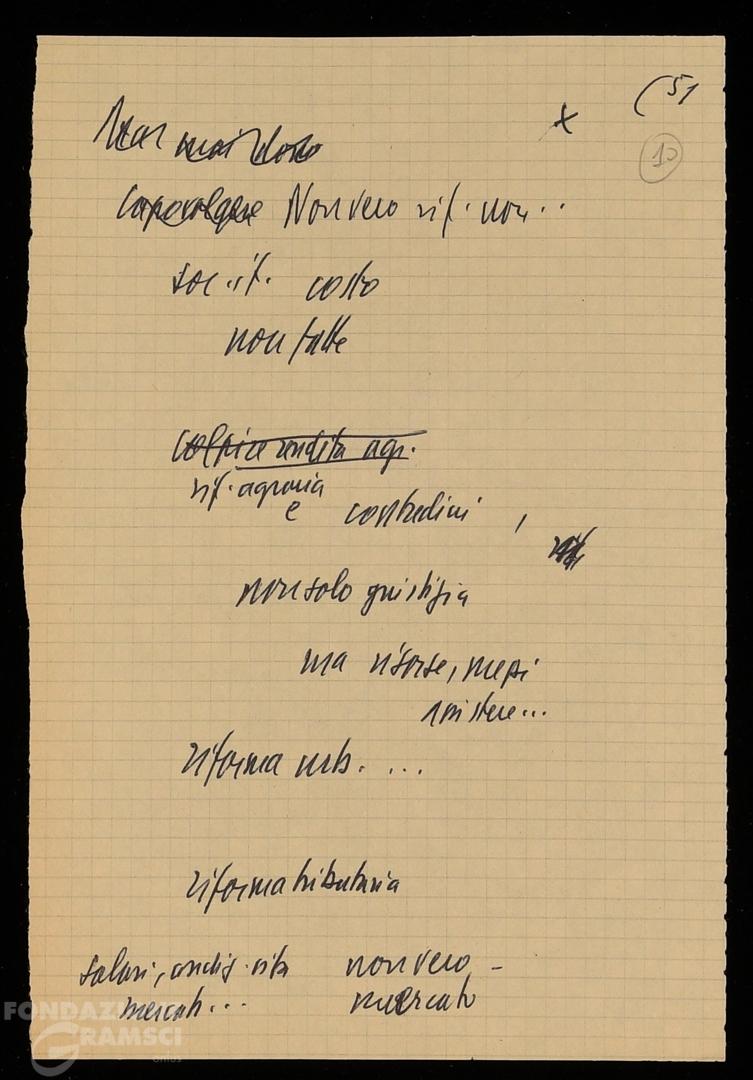 (51
x
10
Non vero rif. non..
soc. it. costo
non fatte
colpire rendita agr.
rif. agraria
e contadini,
non solo giustizia
ma risorse, mezzi
riforma urb. ...
riforma tributaria
salari, condiz. vita non vero -
mercato... mercato
FONDAZIONE
GRAMSCI
onlus